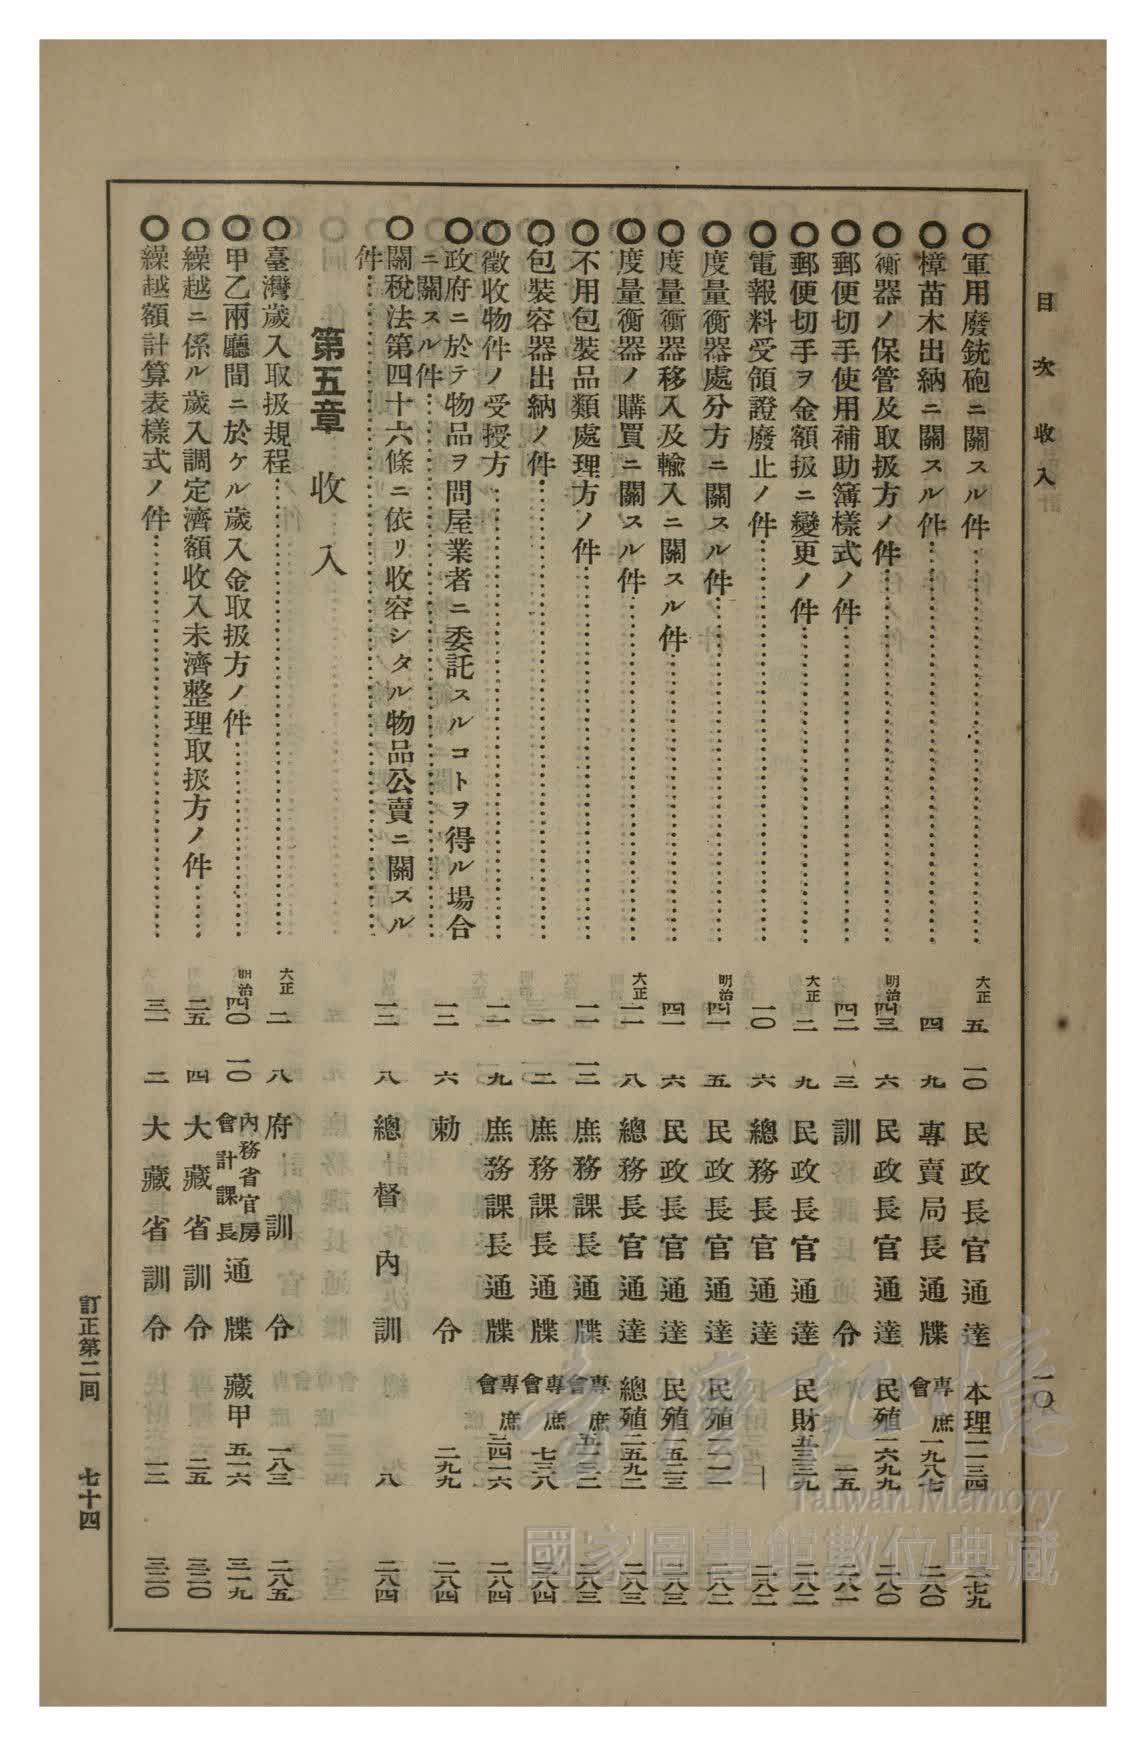 目次 收入
一〇
軍用廢銃砲ニ關スル件 大正五 一〇 民政長官通達 本理一二三四 二七九
樟苗木出納ニ關スル件 四 九 專賣局長通牒 專會庶一九八七 二八〇
衡器ノ保管及取扱方ノ件 明治四三 六 民政長官通達 民殖一六九九 二八〇
郵便切手使用補助簿樣式ノ件 四二 三 訓令 一五 二八一
郵便切手ヲ金額扱ニ變更ノ件 大正二 九 民政長官通達 民財五三三九 二八二
電報料受領證廢止ノ件 一〇 六 總務長官通達 ― 二八二
度量衡器處分方ニ關スル件 明治四一 五 民政長官通達 民殖二一一 二八二
度量衡器移入及輸入ニ關スル件 四一 六 民政長官通達 民殖一五二三 二八三
度量衡器ノ購買ニ關スル件 大正一一 八 總務長官通達 總殖二五九二 二八三
不用包裝品類處理方ノ件 一一 一二 庶務課長通牒 專會庶五一三二 二八三
包裝容器出納ノ件 一 二 庶務課長通牒 專會庶七三八 二八四
徵收物件ノ受授方 一一 九 庶務課長通牒 專會庶三四一六 二八四
政府ニ於テ物品ヲ問屋業者ニ委託スルコトヲ得ル場合
ニ關スル件 一二 六 勅令 二九九 二八四
關稅法第四十六條ニ依リ收容シタル物品公賣ニ關スル
件 一二 八 總督內訓 八 二八四
第五章 收入
臺灣歲入取扱規程 大正二 八 府訓令 一八三 二八五
甲乙兩廳間ニ於ケル歲入金取扱方ノ件 明治四〇 一〇 內務省官房會計課長通牒 藏甲五一六 三一九
繰越ニ係ル歲入調定濟額收入未濟整理取扱方ノ件 二五 四 大藏省訓令 二五 三二〇
繰越額計算表樣式ノ件 三一 二 大藏省訓令 一二 三二〇
訂正第二回 七十四
臺灣記憶
Taiwan Memory
國家圖書館數位典藏